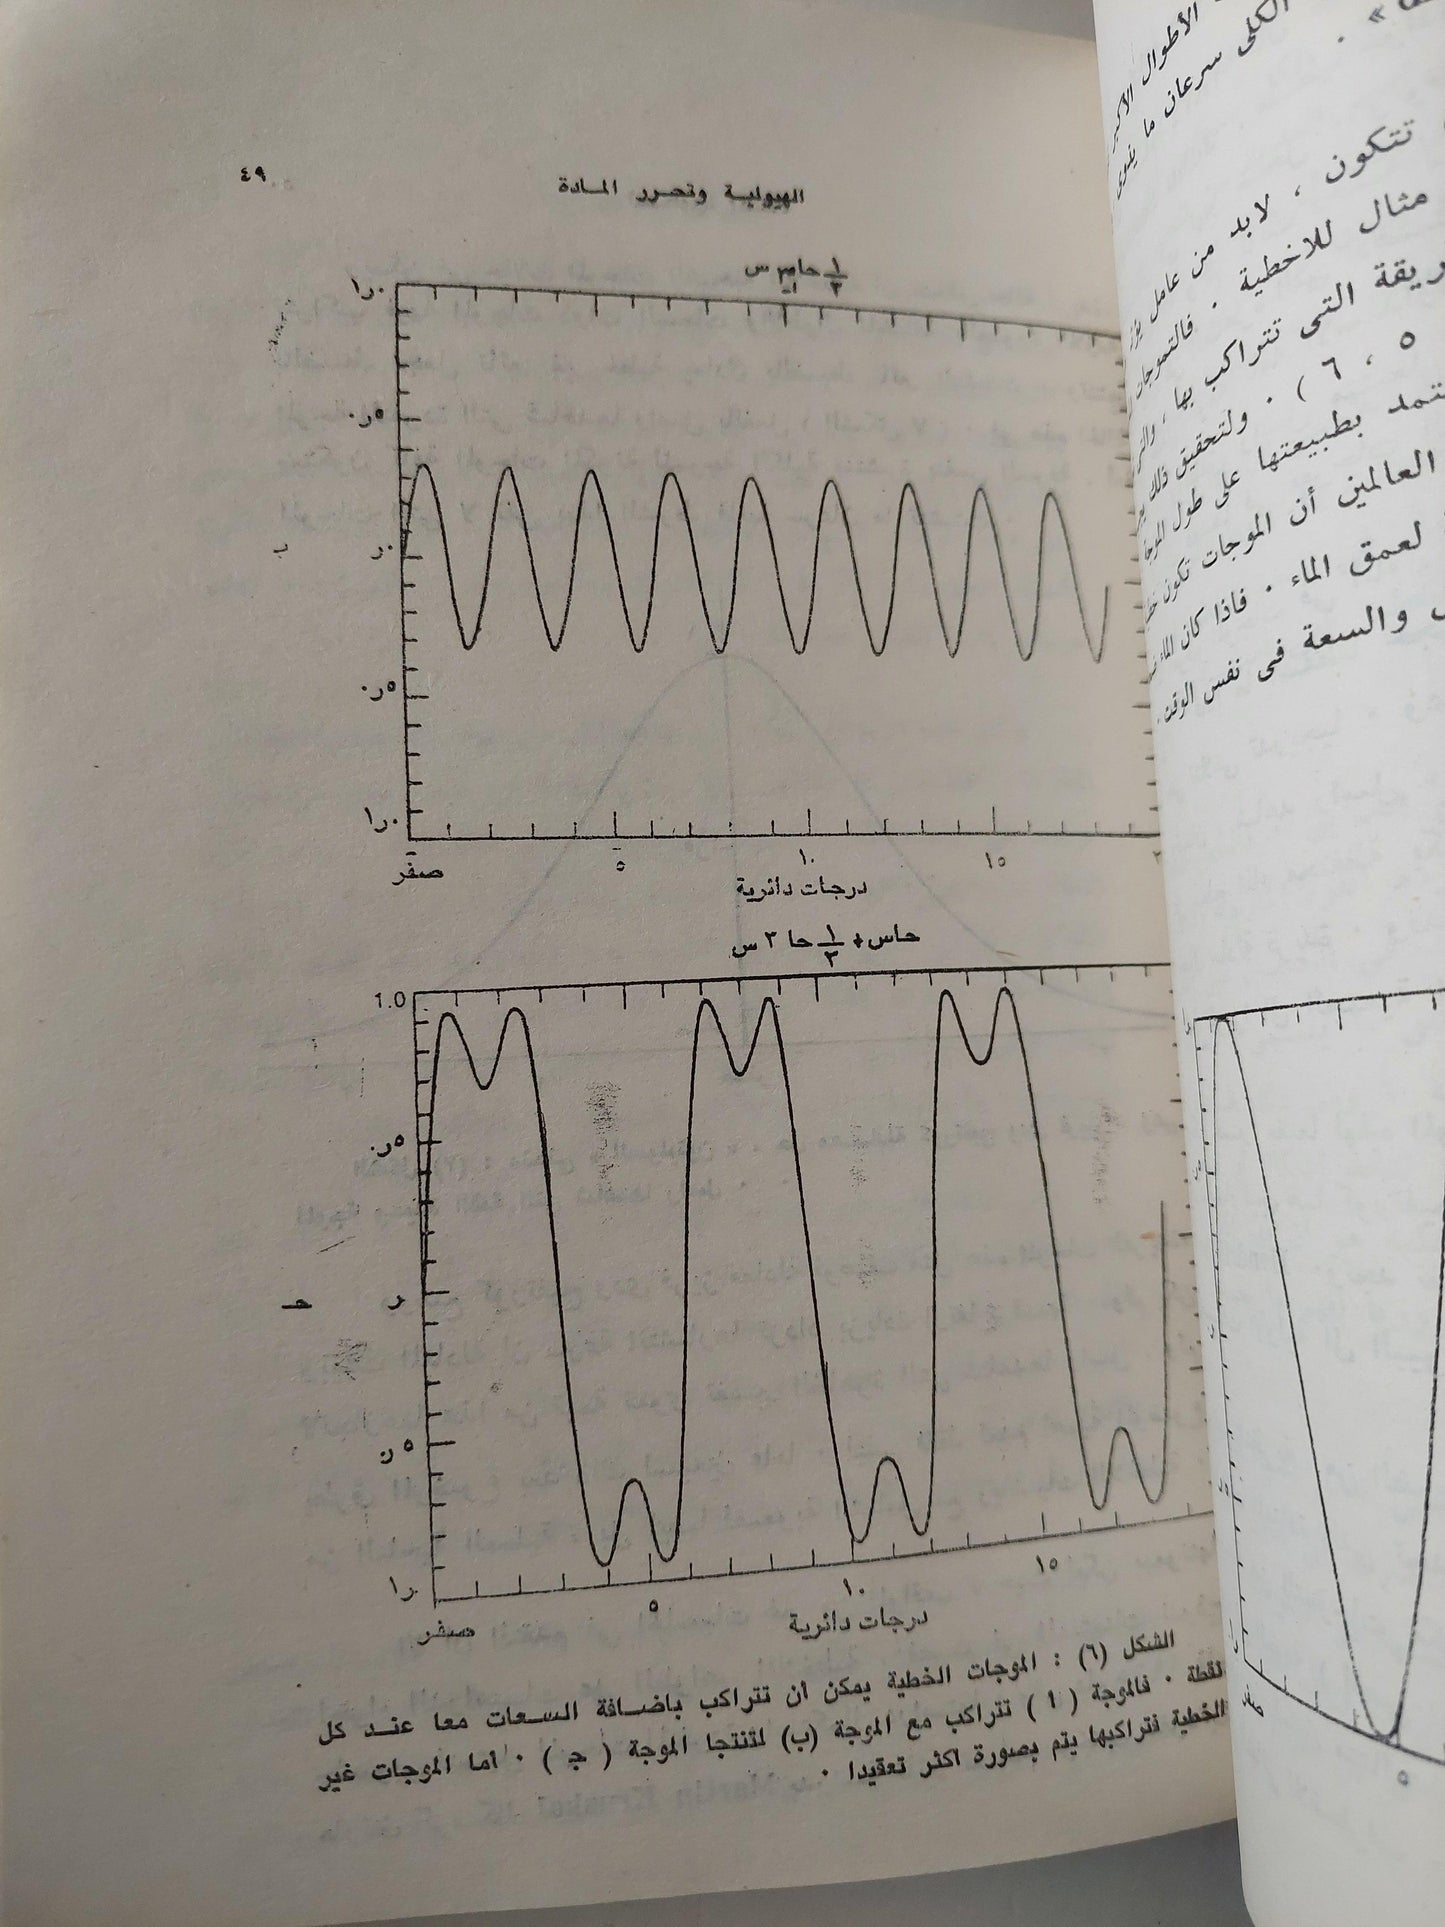 ٤٩
الهيولية وتحرر المادة
١ر٠
٥ر٠
٠ر
٥ر٠
١ر٠
ب
صفر
٥
١٠
١٥
درجات دائرية
حاس + ١/٣ حا ٣ س
1.0
٥ر٠
ر
١ر٠
حـ
صفر
٥
١٠
١٥
درجات دائرية
الشكل (٦) : الموجات الخطية يمكن أن تتراكب باضافة السعات معا عند كل
نقطة ٠ فالموجة ( ا ) تتراكب مع الموجة (ب) لتنتجا الموجة ( ج ) ٠ أما الموجات غير
الخطية فتراكبها يتم بصورة أكثر تعقيدا ٠
الكلى سرعان ما
تتكون ، لابد من عامل
مثال للاخطية ٠ فالتموجات
التى تتراكب بها
٥ ، ٦ ) ٠ ولتحقيق ذلك
بطبيعتها على طول الموجة
العالمين أن الموجات تكون
لعمق الماء ٠ فاذا كان الماء
والسعة فى نفس الوقت ٠
٥